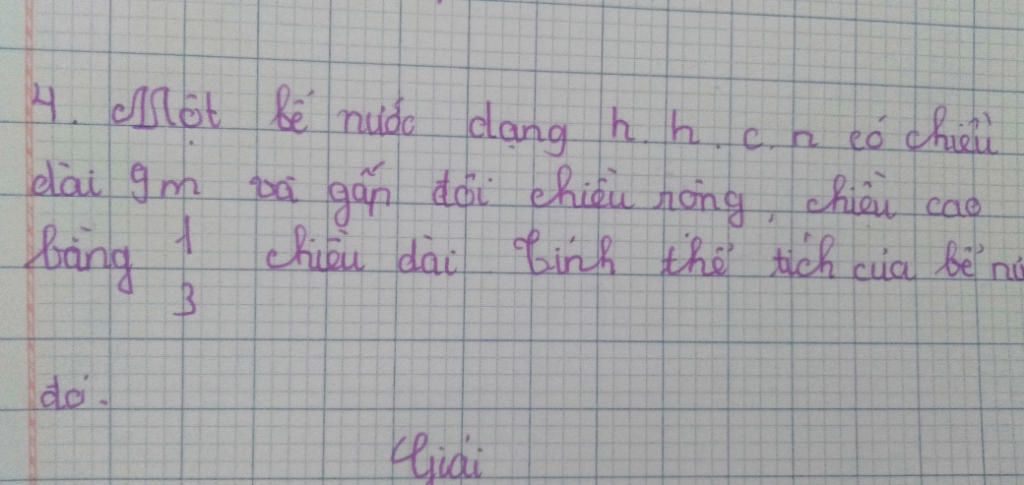 4. Một bể nước dạng h.h.c.n có chiều
dài 9m và gấp đôi chiều rộng, chiều cao
bằng 1/3 chiều dài Tính thể tích của bể nư
đó.
Giải